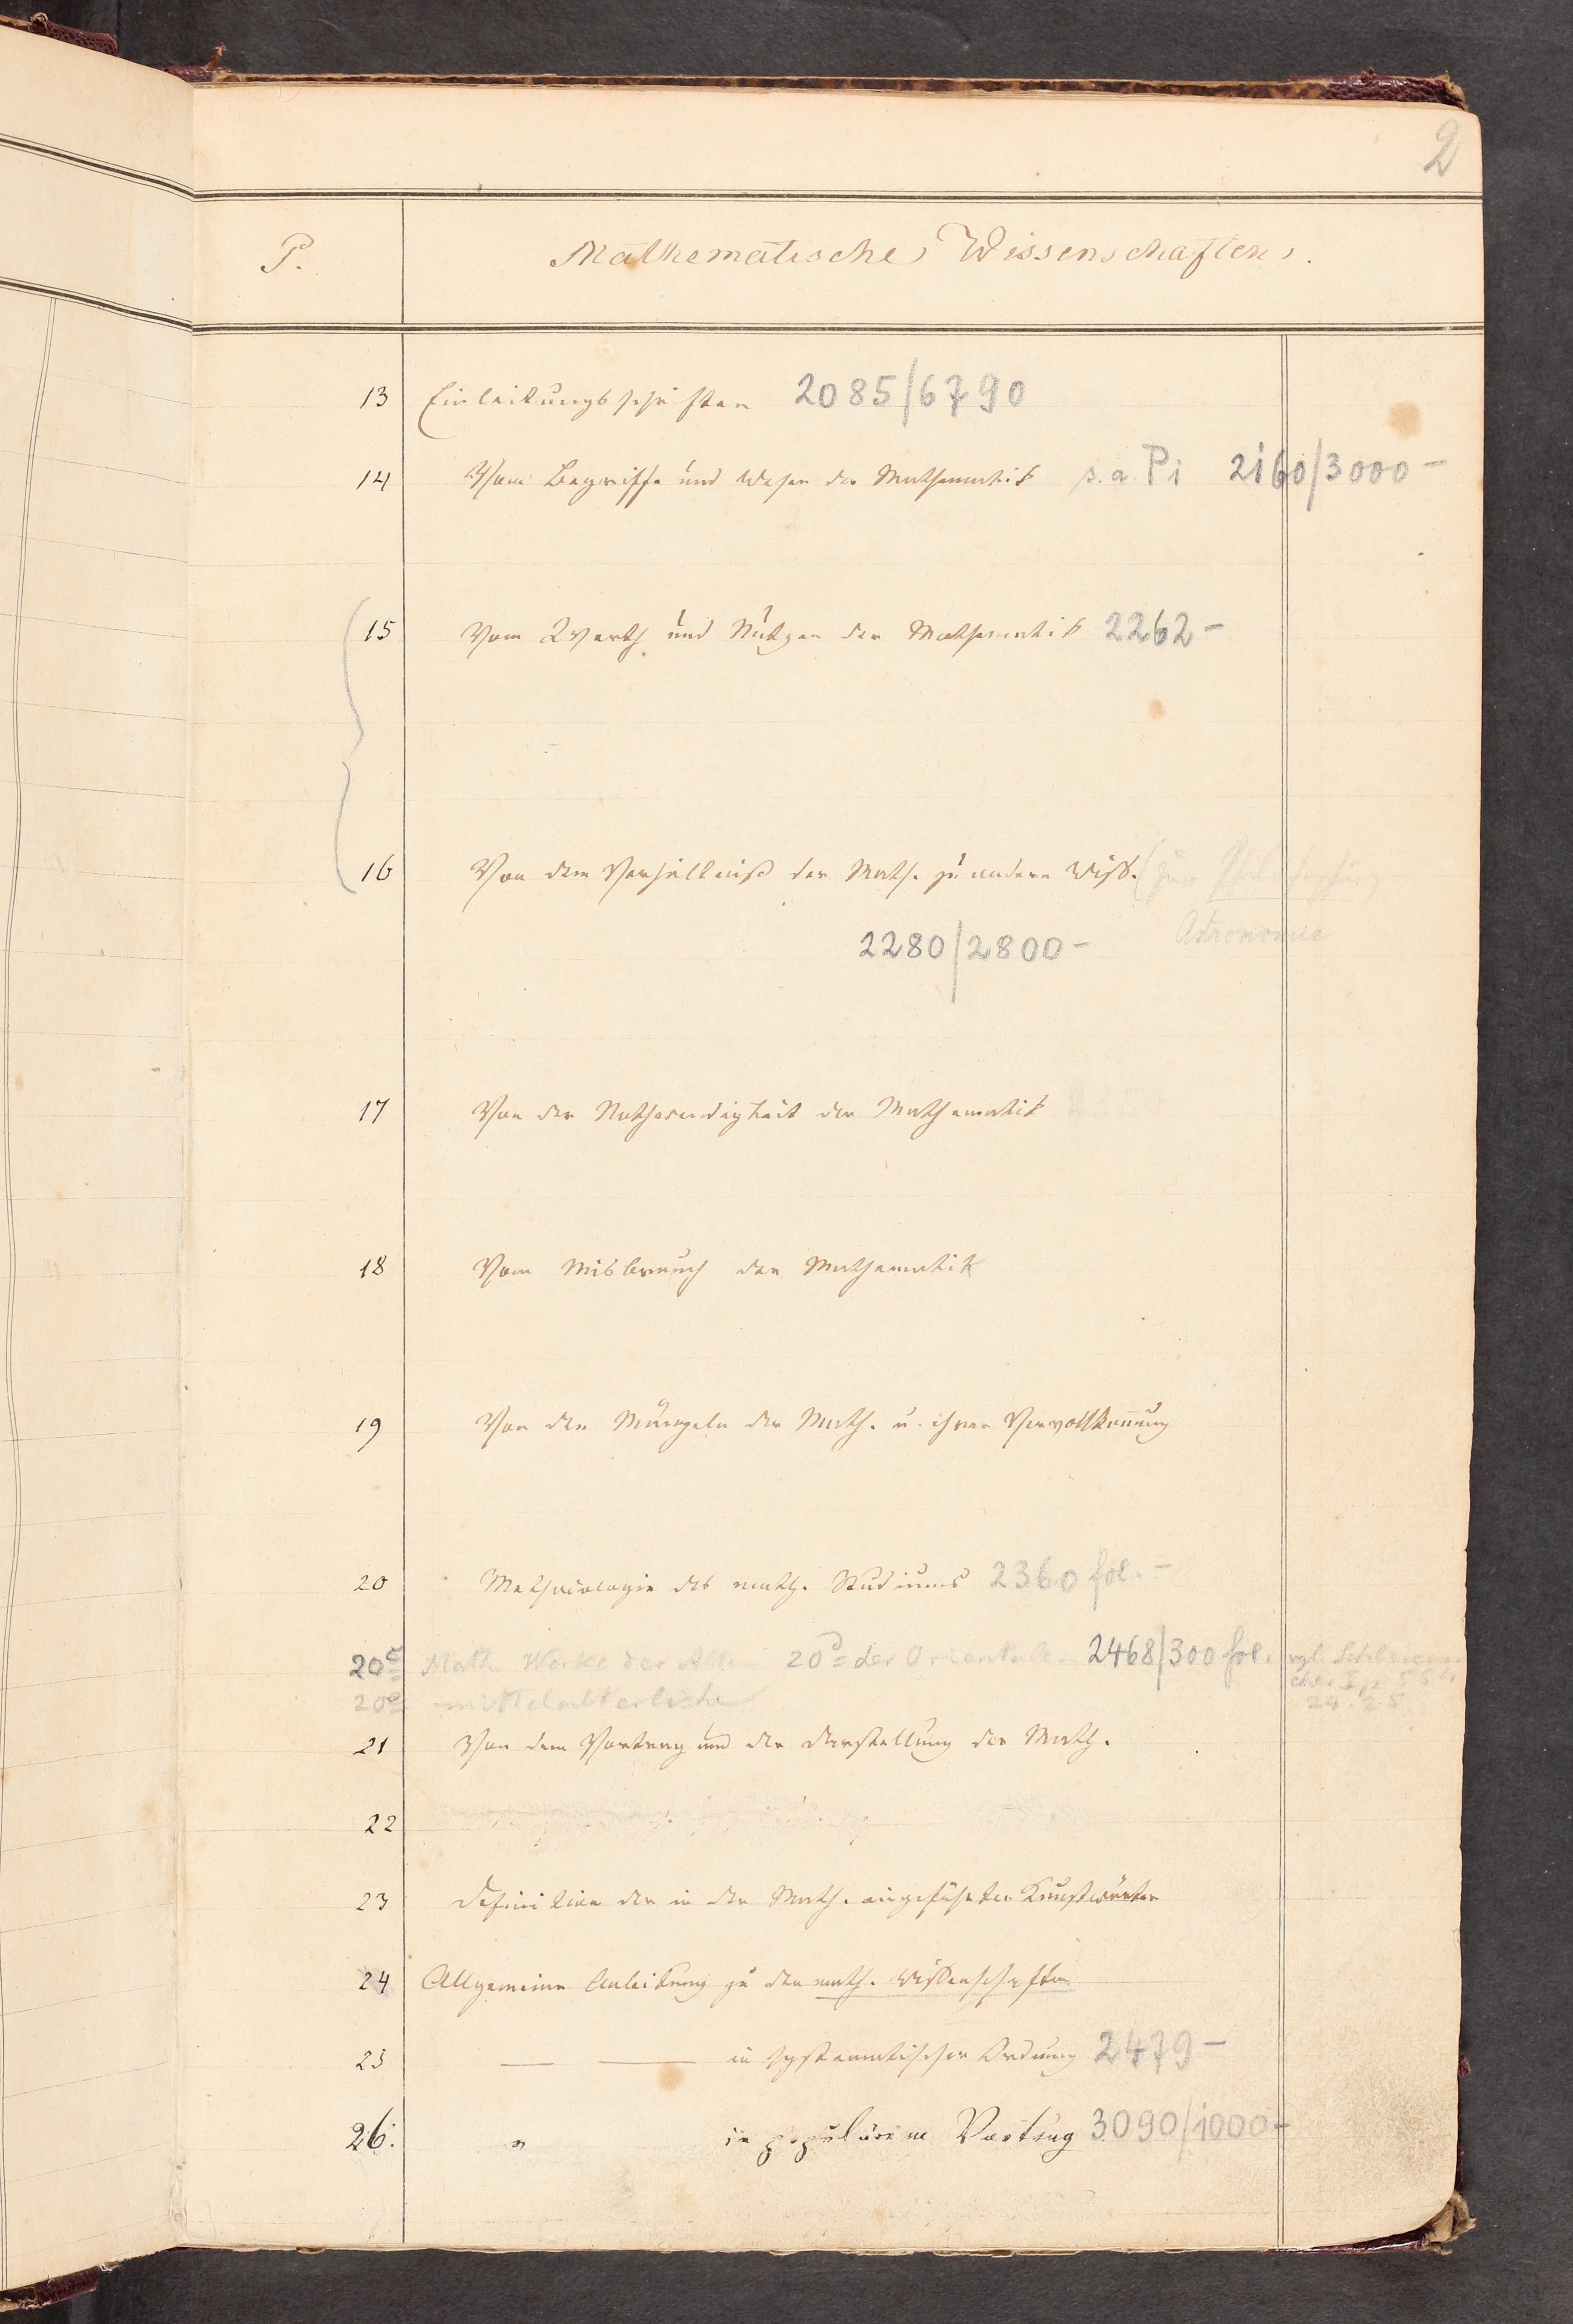 2
P. Mathematische Wissenschaften.
13 Einleitungsschriften 2085/6790
14 Vom Begriffe und Wesen der Mathematik s. a. Pi 2160/3000-
15 Vom Werth und Nutzen der Mathematik 2262-
16 Von dem Verhältniß der Math. zu andern Wiss. (zur Philosophie,
Astronomie
2280/2800-
17 Von der Nothwendigkeit der Mathematik
18 Vom Misbrauch der Mathematik
19 Von den Mängeln der Math. u. ihrer Vervollkommnung
20 Methodologie des math. Studiums 2360 fol.-
20c Math. Werke der Alten 20d der Orientalen 2468/300 fol. vgl. Schleierma
cher I p 554
24.25
20e mittelalterliche
21 Von dem Vortrag und der Darstellung der Math.
22
23 Definition der in der Math. eingeführten Kunstwörter
24 Allgemeine Anleitung zu den math. Wissenschaften
25 — — in systematischer Ordnung 2479-
26. " in populärem Vortrag 3090/1000-